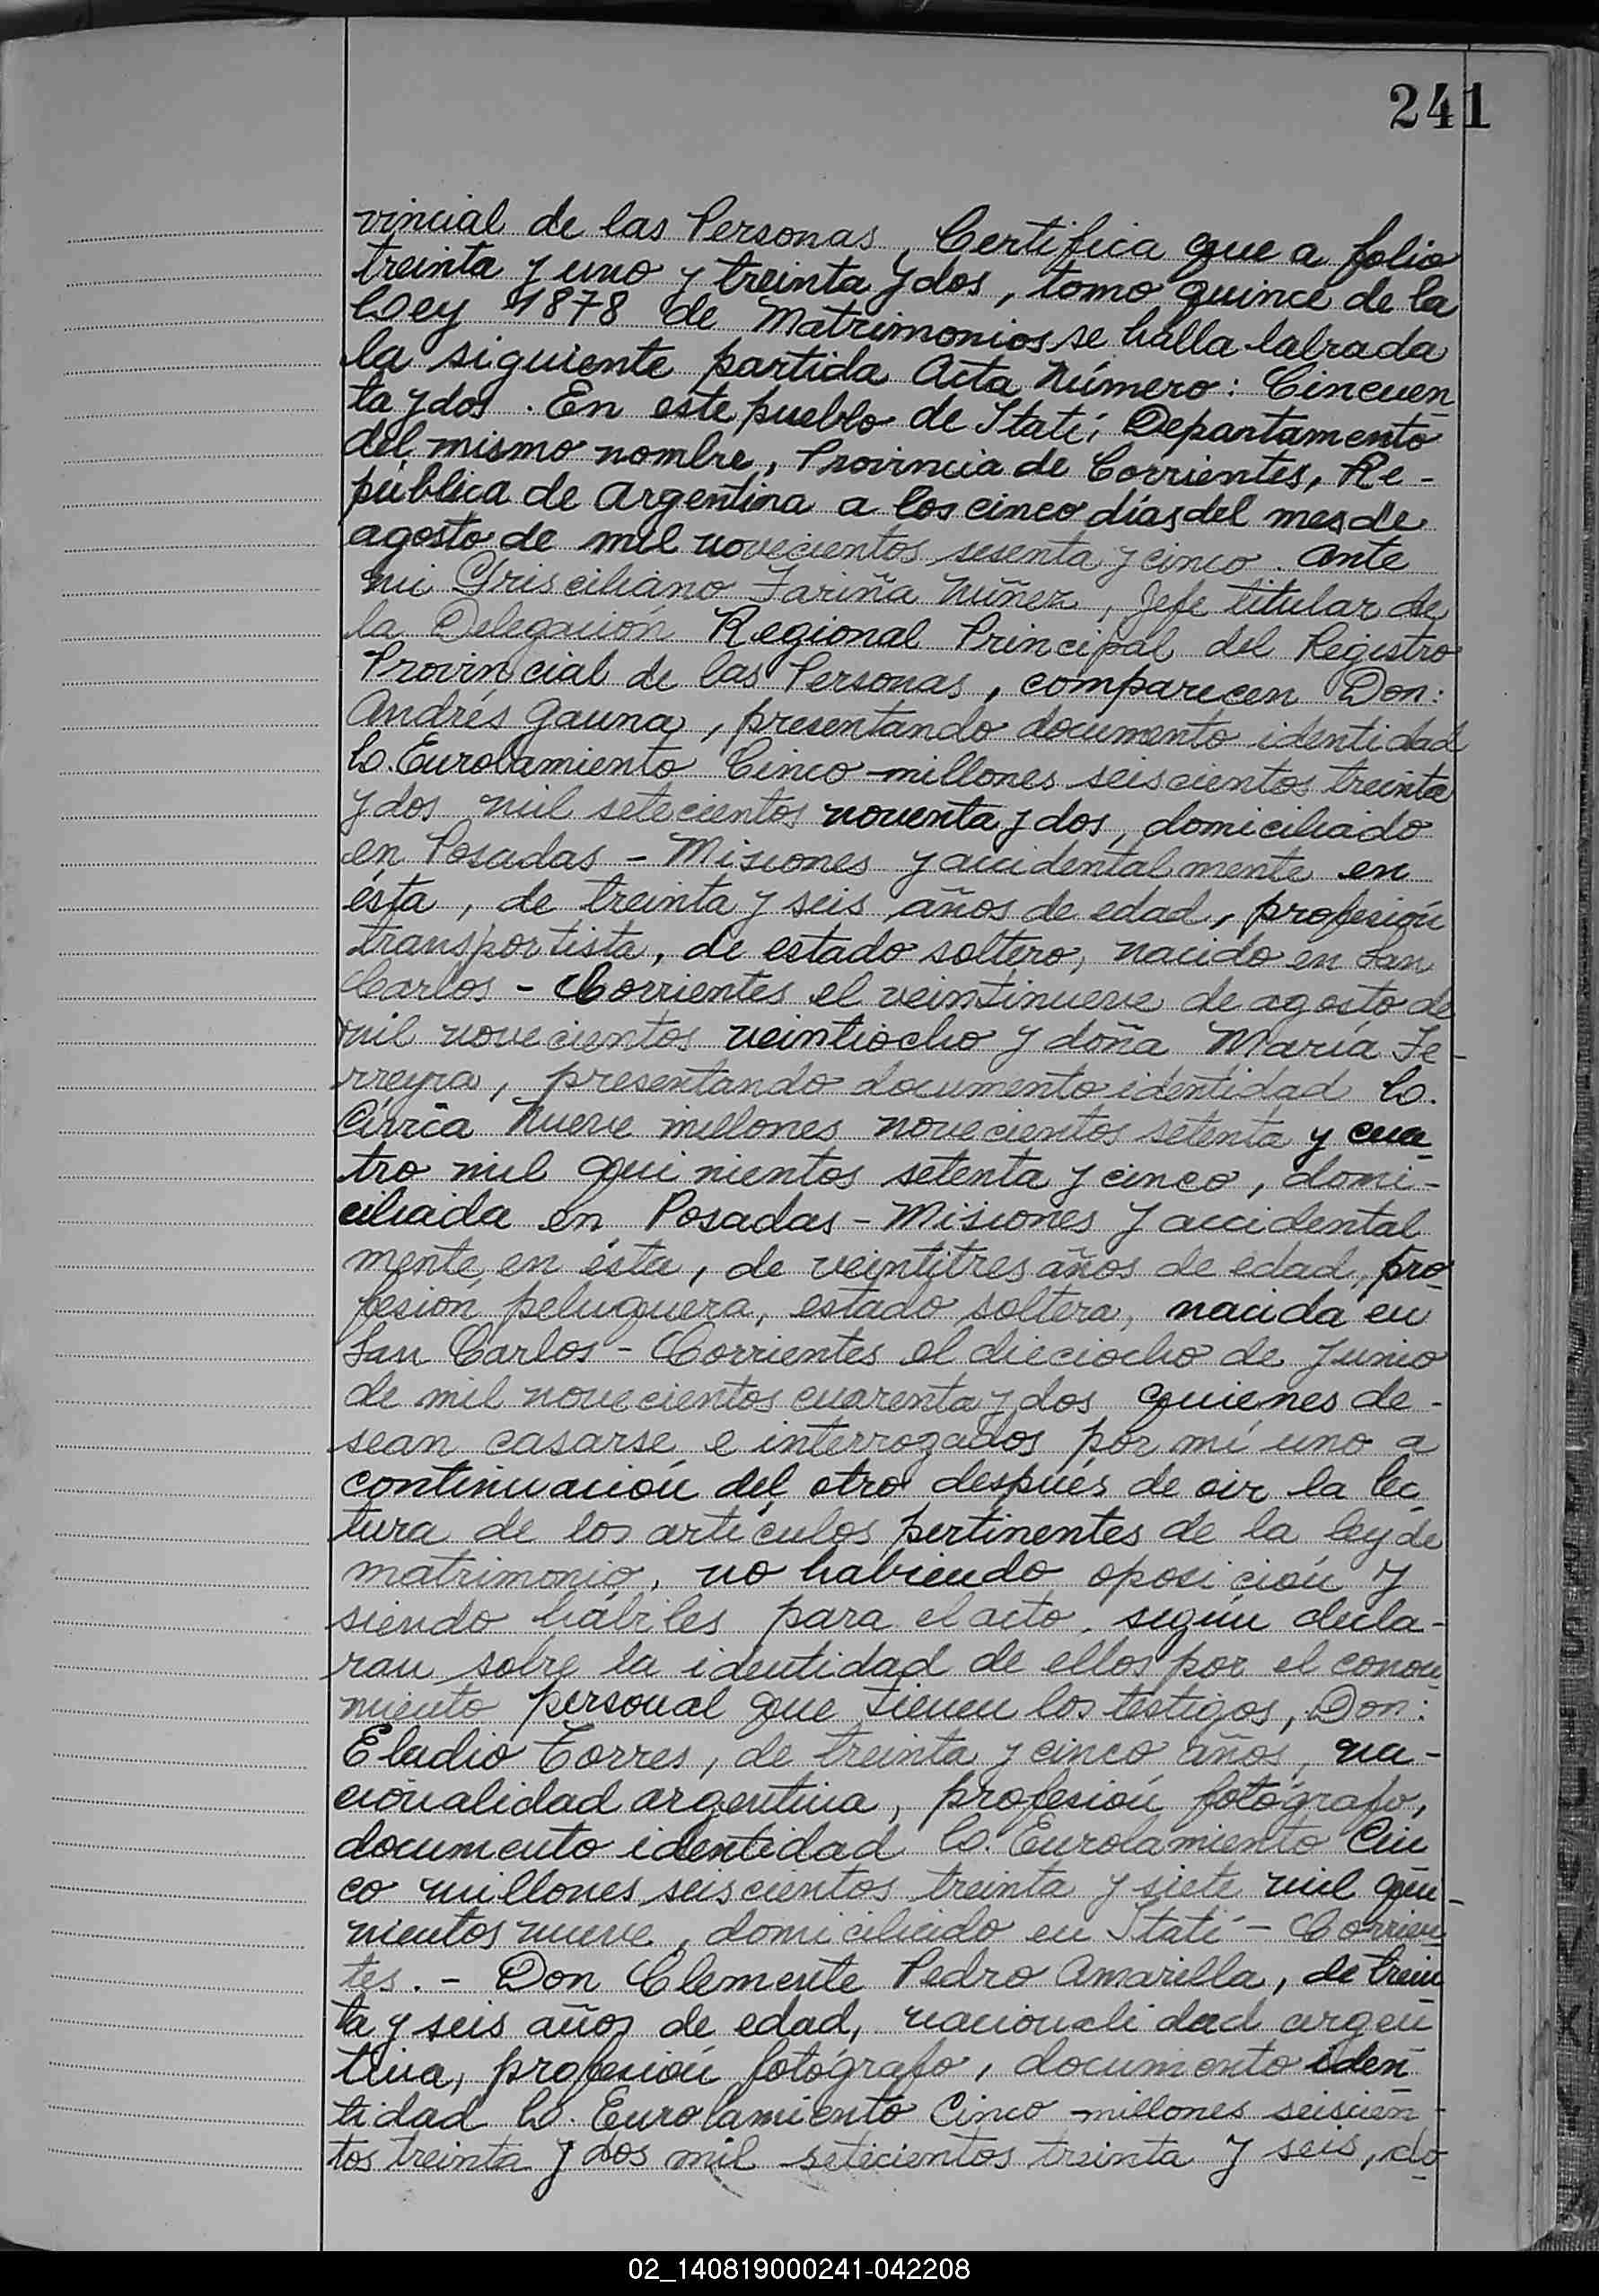 241
vincial de las Personas, Certifica que a folio
treinta y uno y treinta y dos, tomo quince de la
Ley 1878 de Matrimonios se halla labrada
la siguiente partida Acta Número: Cincuen
ta y dos. En este pueblo de Itatí, Departamento
del mismo nombre, Provincia de Corrientes, Re-
pública de Argentina a los cinco días del mes de
agosto de mil novecientos sesenta y cinco. Ante
mi Grisciliano Fariña Núñez, Jefe titular de
la Delegación Regional Principal del Registro
Provincial de las Personas, comparecen Don:
Andrés Gauna, presentando documento identidad
L. Eurolamiento Cinco millones seiscientos treinta
y dos mil setecientos noventa y dos, domiciliado
en Posadas - Misiones y accidentalmente en
ésta, de treinta y seis años de edad, profesión
transportista, de estado soltero, nacido en San
Carlos - Corrientes el veintinueve de agosto de
mil novecientos veintiocho y doña María Fe-
rreyra, presentando documento identidad L.
Cívica Nueve millones novecientos setenta y cua
tro mil quinientos setenta y cinco, domi-
ciliada en Posadas - Misiones y accidental
mente en ésta, de veintitres años de edad, pro
fesión peluquera, estado soltera, nacida en
San Carlos - Corrientes el dieciocho de Junio
de mil novecientos cuarenta y dos quienes de-
sean casarse e interrogados por mí uno a
continuación del otro después de oir la lec
tura de los artículos pertinentes de la ley de
matrimonio, no habiendo oposición y
siendo hábiles para el acto, según decla-
ran sobre la identidad de ellos por el conoci
miento personal que tienen los testigos, Don:
Eladio Torres, de treinta y cinco años, na-
cionalidad argentina, profesión fotógrafo,
documento identidad L. Eurolamiento Cin
co millones seiscientos treinta y siete mil qui-
nientos nueve, domiciliado en Itatí - Corrien
tes. - Don Clemente Pedro Amarilla, de trein
ta y seis años de edad, nacionalidad argen
tina, profesión fotógrafo, documento iden
tidad L. Eurolamiento Cinco millones seiscien-
tos treinta y dos mil setecientos treinta y seis, do
02_140819000241-042208